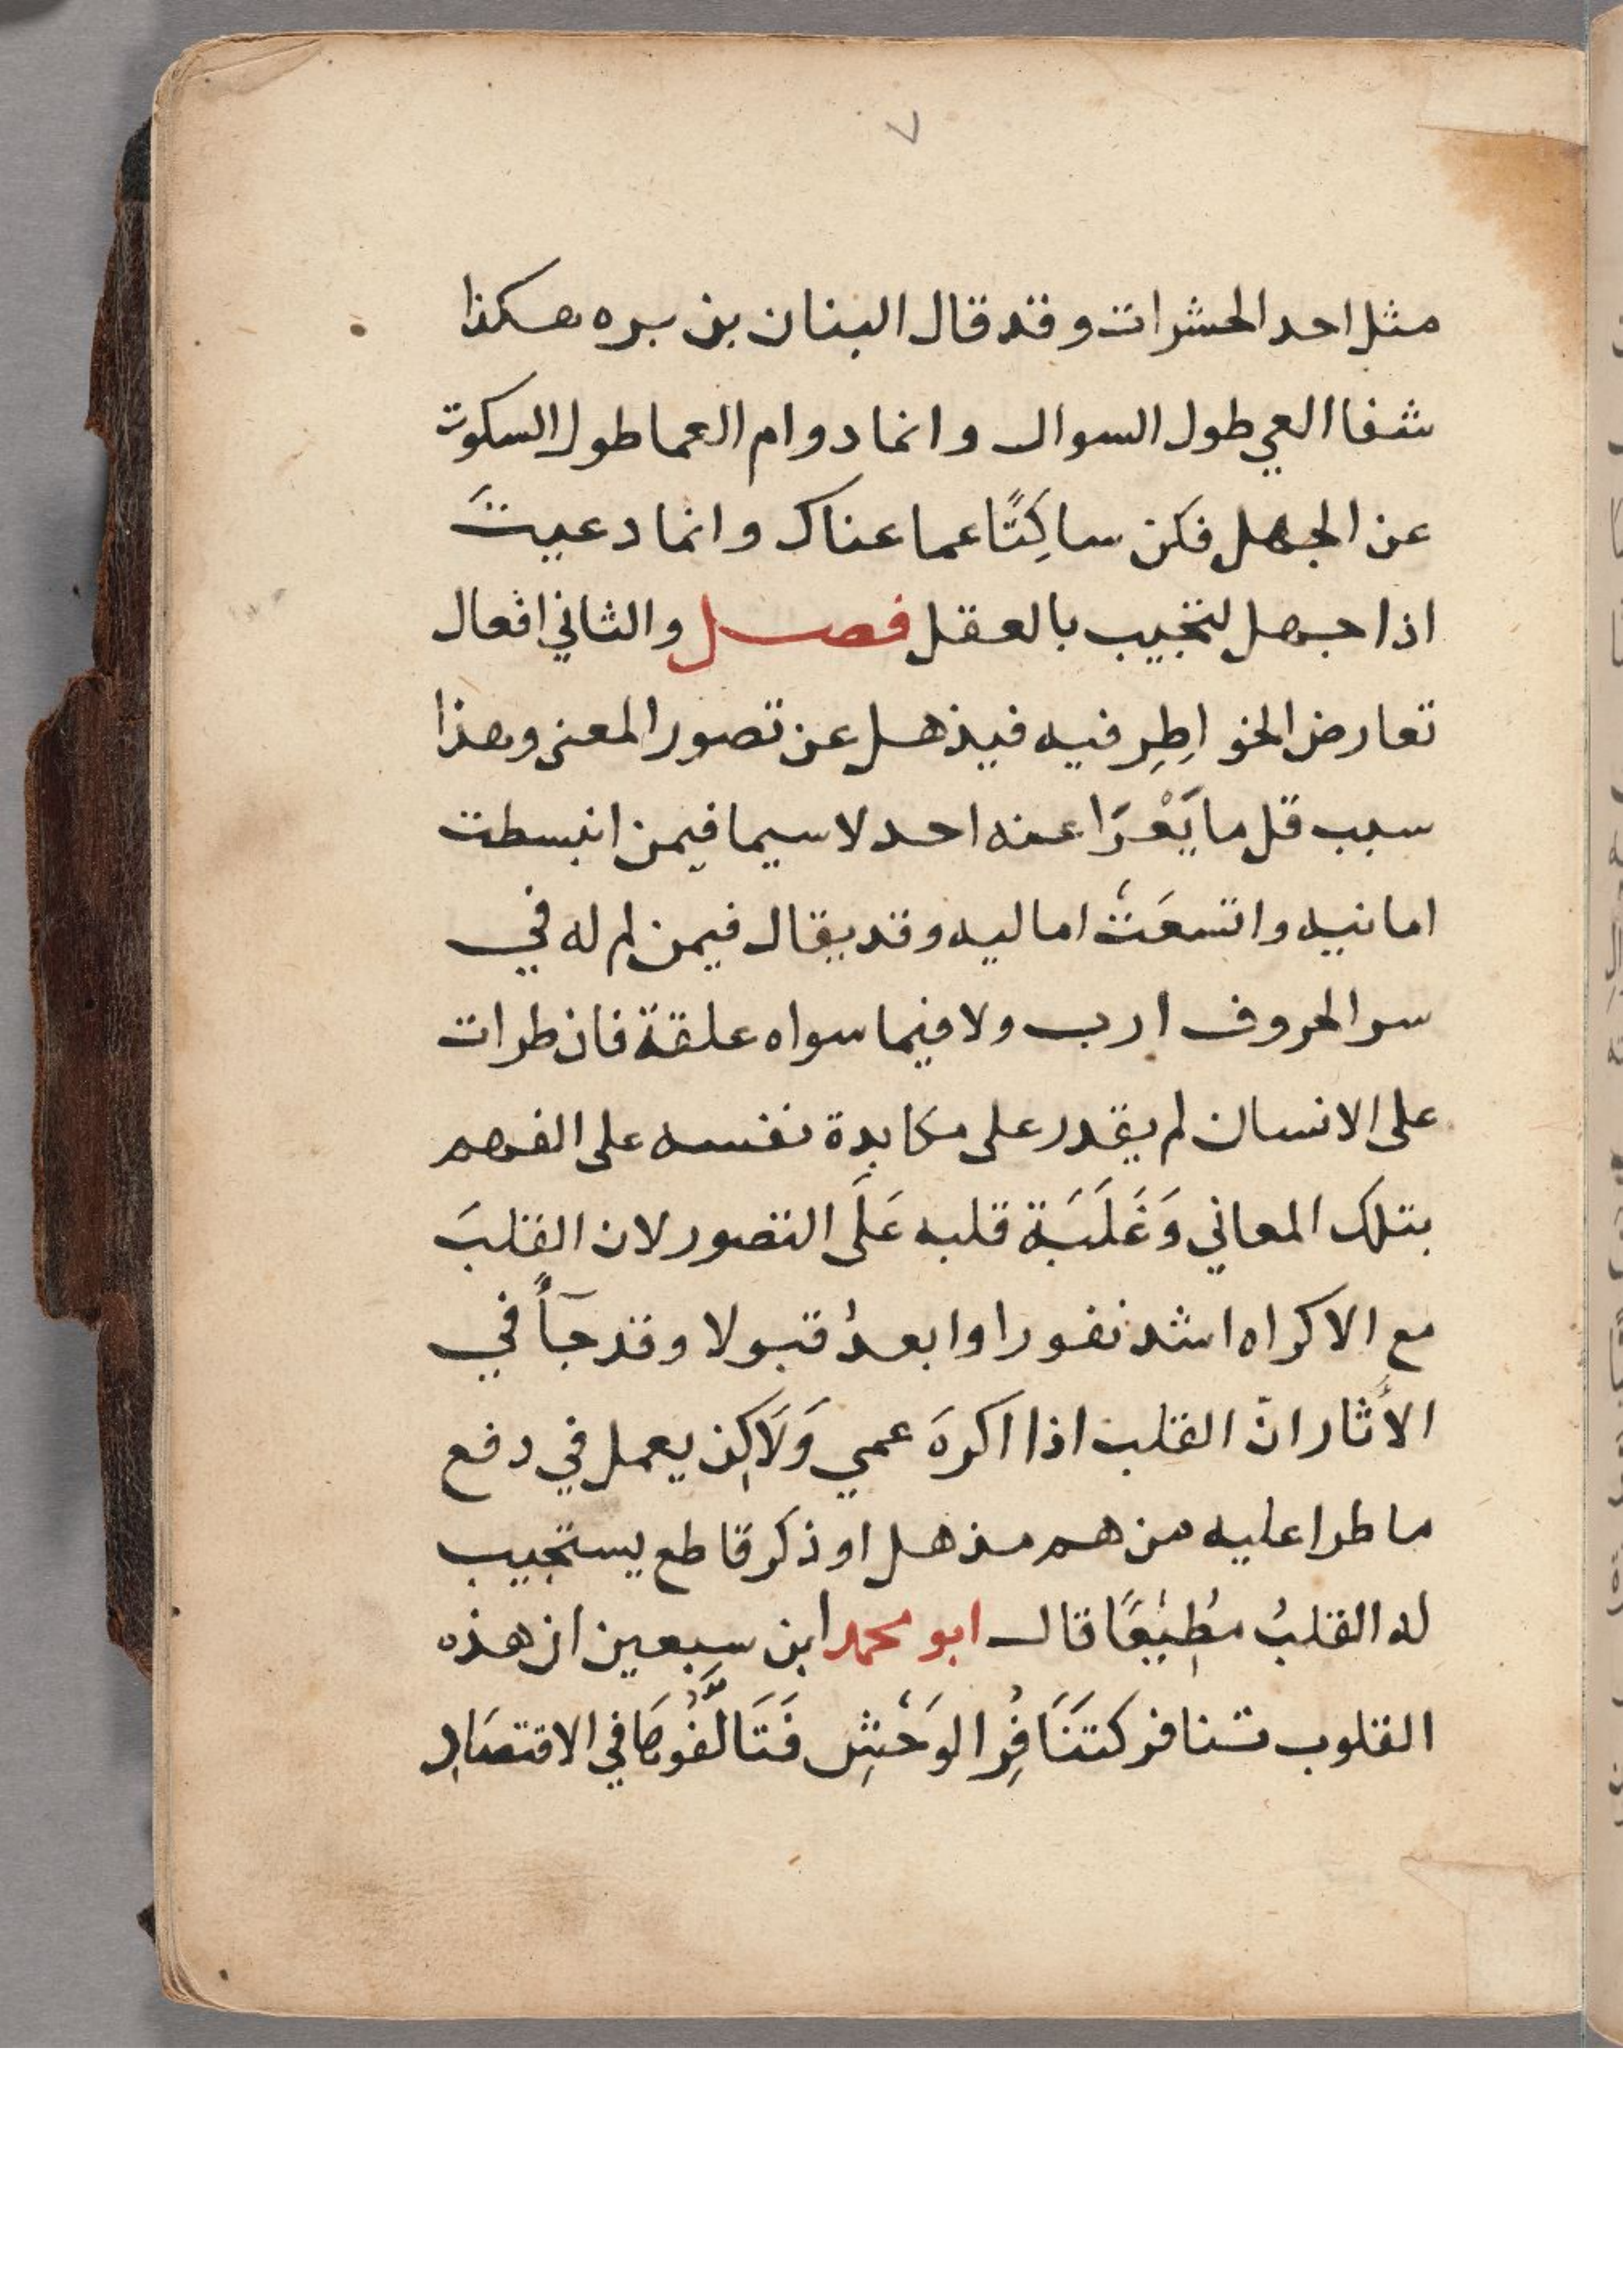 ٧
مثل احد الحشرات وقد قال البنان بن بره هكذا
شفا العي طول السوال وانما دوام العما طول السكوت
عن الجهل فكن ساكِتًا عما عناك وانما دعيتَ
اذا جهل لتجيب بالعقل فصل والثاني افعال
تعارض الخواطِرِ فيه فيذهل عن تصور المعنى وهذا
سبب قل ما يَعْرَا عنه احد لا سيما فيمن انبسطت
امانيه واتسعَتْ اماليه وقد يقال فيمن لم له في
سر الحروف ارب ولا فيما سواه علقة فان طرات
على الانسان لم يقدر على مكابدة نفسه على الفهم
بتلك المعاني وَغَلَبَة قلبه عَلَى التصور لان القلبَ
مع الاكراه اشد نفورا وابعدُ قبولا وقد جآءً في
الأثار انّ القلب اذا اكرهَ عمي وَلَاكِن يعمل في دفع
ما طرا عليه من هم مذهل او ذكر قاطع يستجيب
له القلبُ مُطِيْعًا قال ابو محمد ابن سبعين ان هذه
القلوب تنافر كتَنَافُرِ الوَحْشِ فَتَالَّفُوهَا في الاقتصَادِ